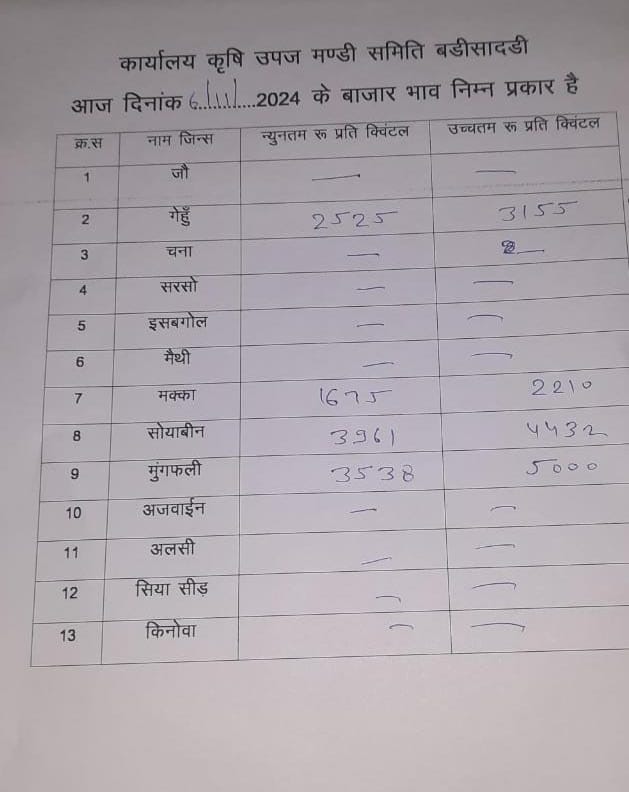 कार्यालय कृषि उपज मण्डी समिति बडीसादडी
आज दिनांक 6/11/2024 के बाजार भाव निम्न प्रकार है
क्र.स नाम जिन्स न्युनतम रू प्रति क्विंटल उच्चतम रू प्रति क्विंटल
1 जौ — —
2 गेहुँ 2525 3155
3 चना — —
4 सरसो — —
5 इसबगोल — —
6 मैथी — —
7 मक्का 1675 2210
8 सोयाबीन 3961 4432
9 मुंगफली 3538 5000
10 अजवाईन — —
11 अलसी — —
12 सिया सीड़ — —
13 किनोवा — —